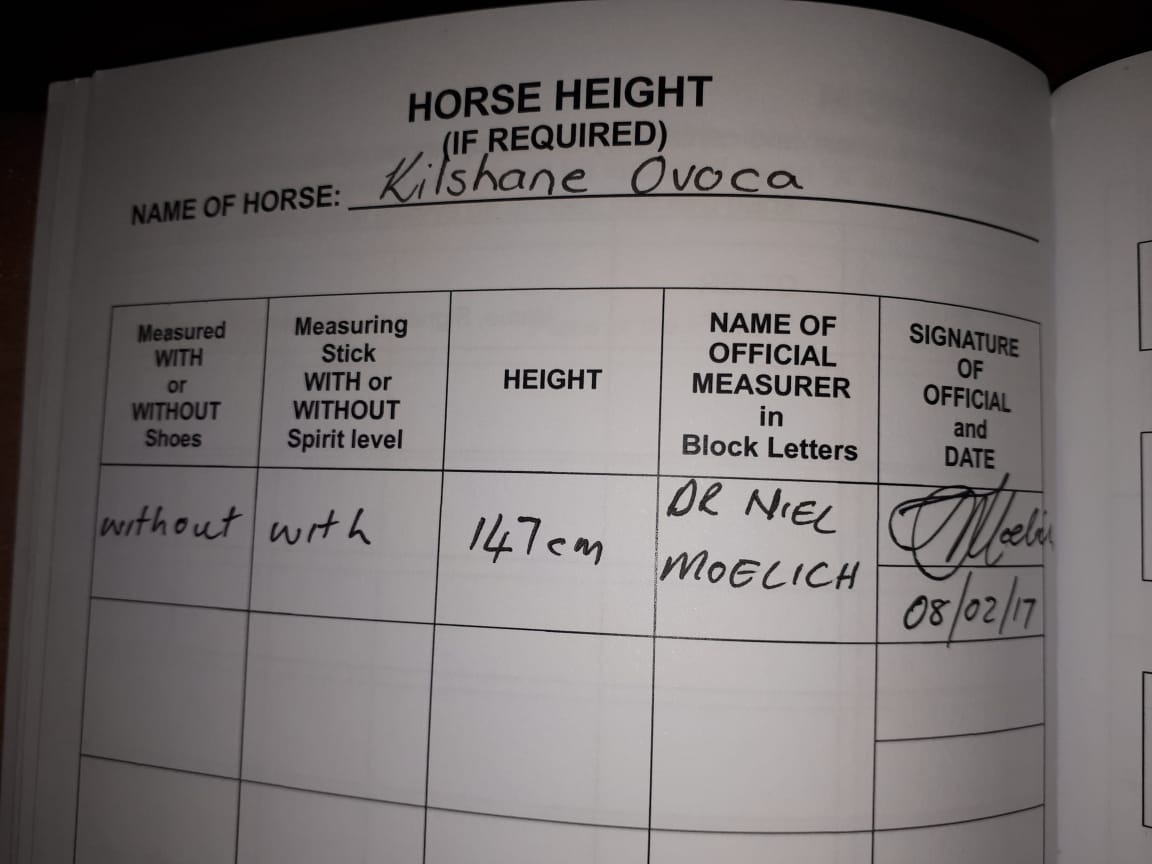 HORSE HEIGHT
(IF REQUIRED)
NAME OF HORSE: Kilshane Ovoca
Measured
WITH
or
WITHOUT
Shoes
Measuring
Stick
WITH or
WITHOUT
Spirit level
HEIGHT
NAME OF
OFFICIAL
MEASURER
in
Block Letters
SIGNATURE
OF
OFFICIAL
and
DATE
without
with
147cm
DR NIEL
MOELICH
08/02/17